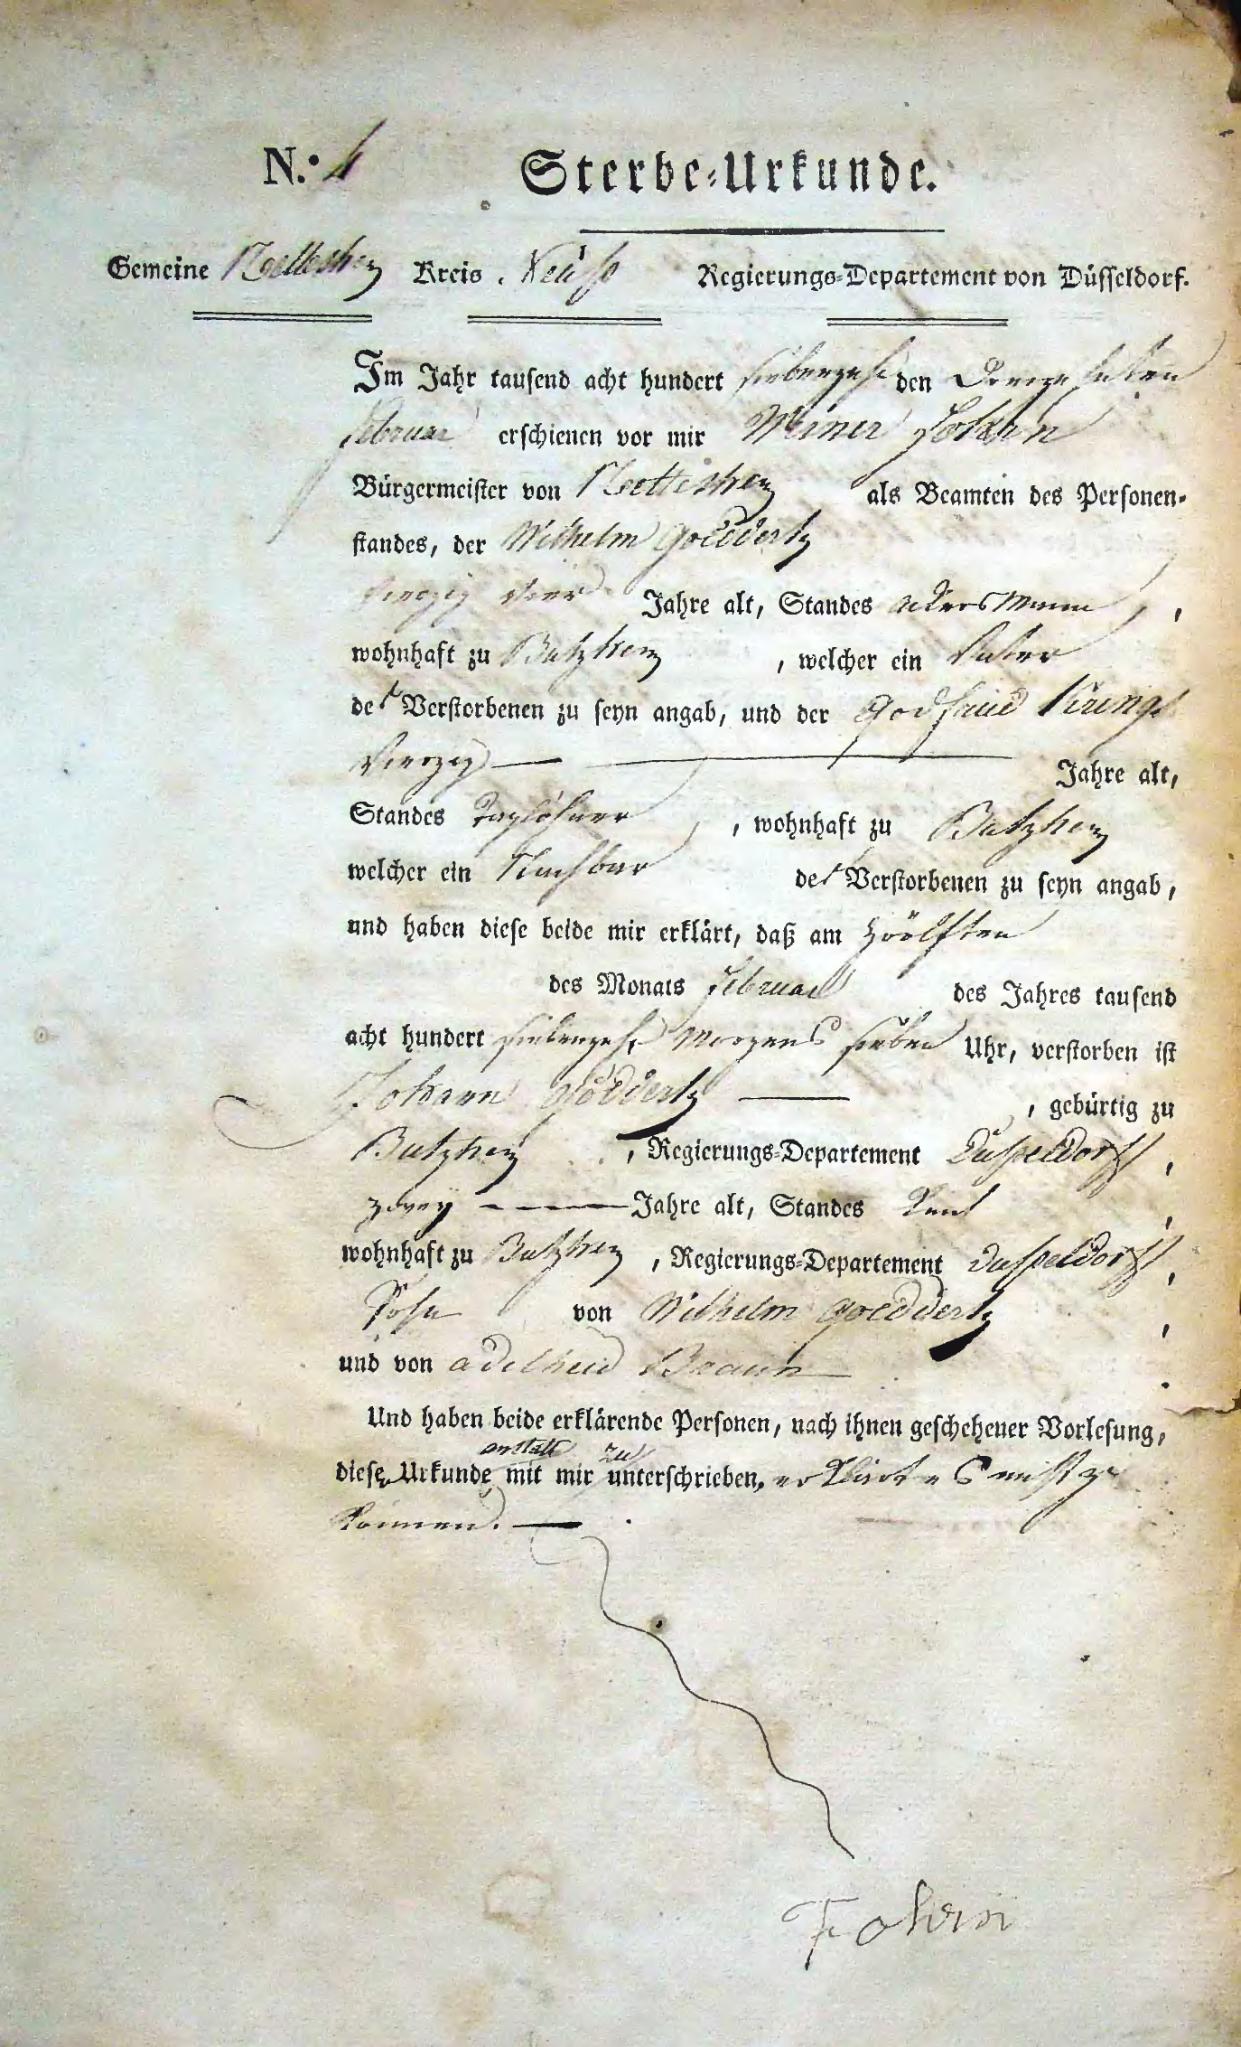 N.º 4 Sterbe-Urkunde.
Gemeine Nettesheim Kreis Neuß Regierungs-Departement von Düsseldorf.
Im Jahr tausend acht hundert siebenzehn den
februar erschienen vor mir Weiner
Bürgermeister von Nettesheim als Beamten des Personen-
standes, der Wilhelm Goeddertz
vierzig vier Jahre alt, Standes Ackersmann,
wohnhaft zu Butzheim, welcher ein Vater
des Verstorbenen zu seyn angab, und der Godfried Krings
vierzig — Jahre alt,
Standes Taglöhner, wohnhaft zu Butzheim
welcher ein Nachbar des Verstorbenen zu seyn angab,
und haben diese beide mir erklärt, daß am zwölften
des Monats februar des Jahres tausend
acht hundert siebenzehn Morgens sieben Uhr, verstorben ist
Johann Goeddertz —, gebürtig zu
Butzheim, Regierungs-Departement Düsseldorf,
zwey — Jahre alt, Standes Kind,
wohnhaft zu Butzheim, Regierungs-Departement Düsseldorf,
Sohn von Wilhelm Goeddertz,
und von adelheid Braun.
Und haben beide erklärende Personen, nach ihnen geschehener Vorlesung,
anstatt zu
diese Urkunde mit mir unterschrieben, erklärt es nicht zu
können. —